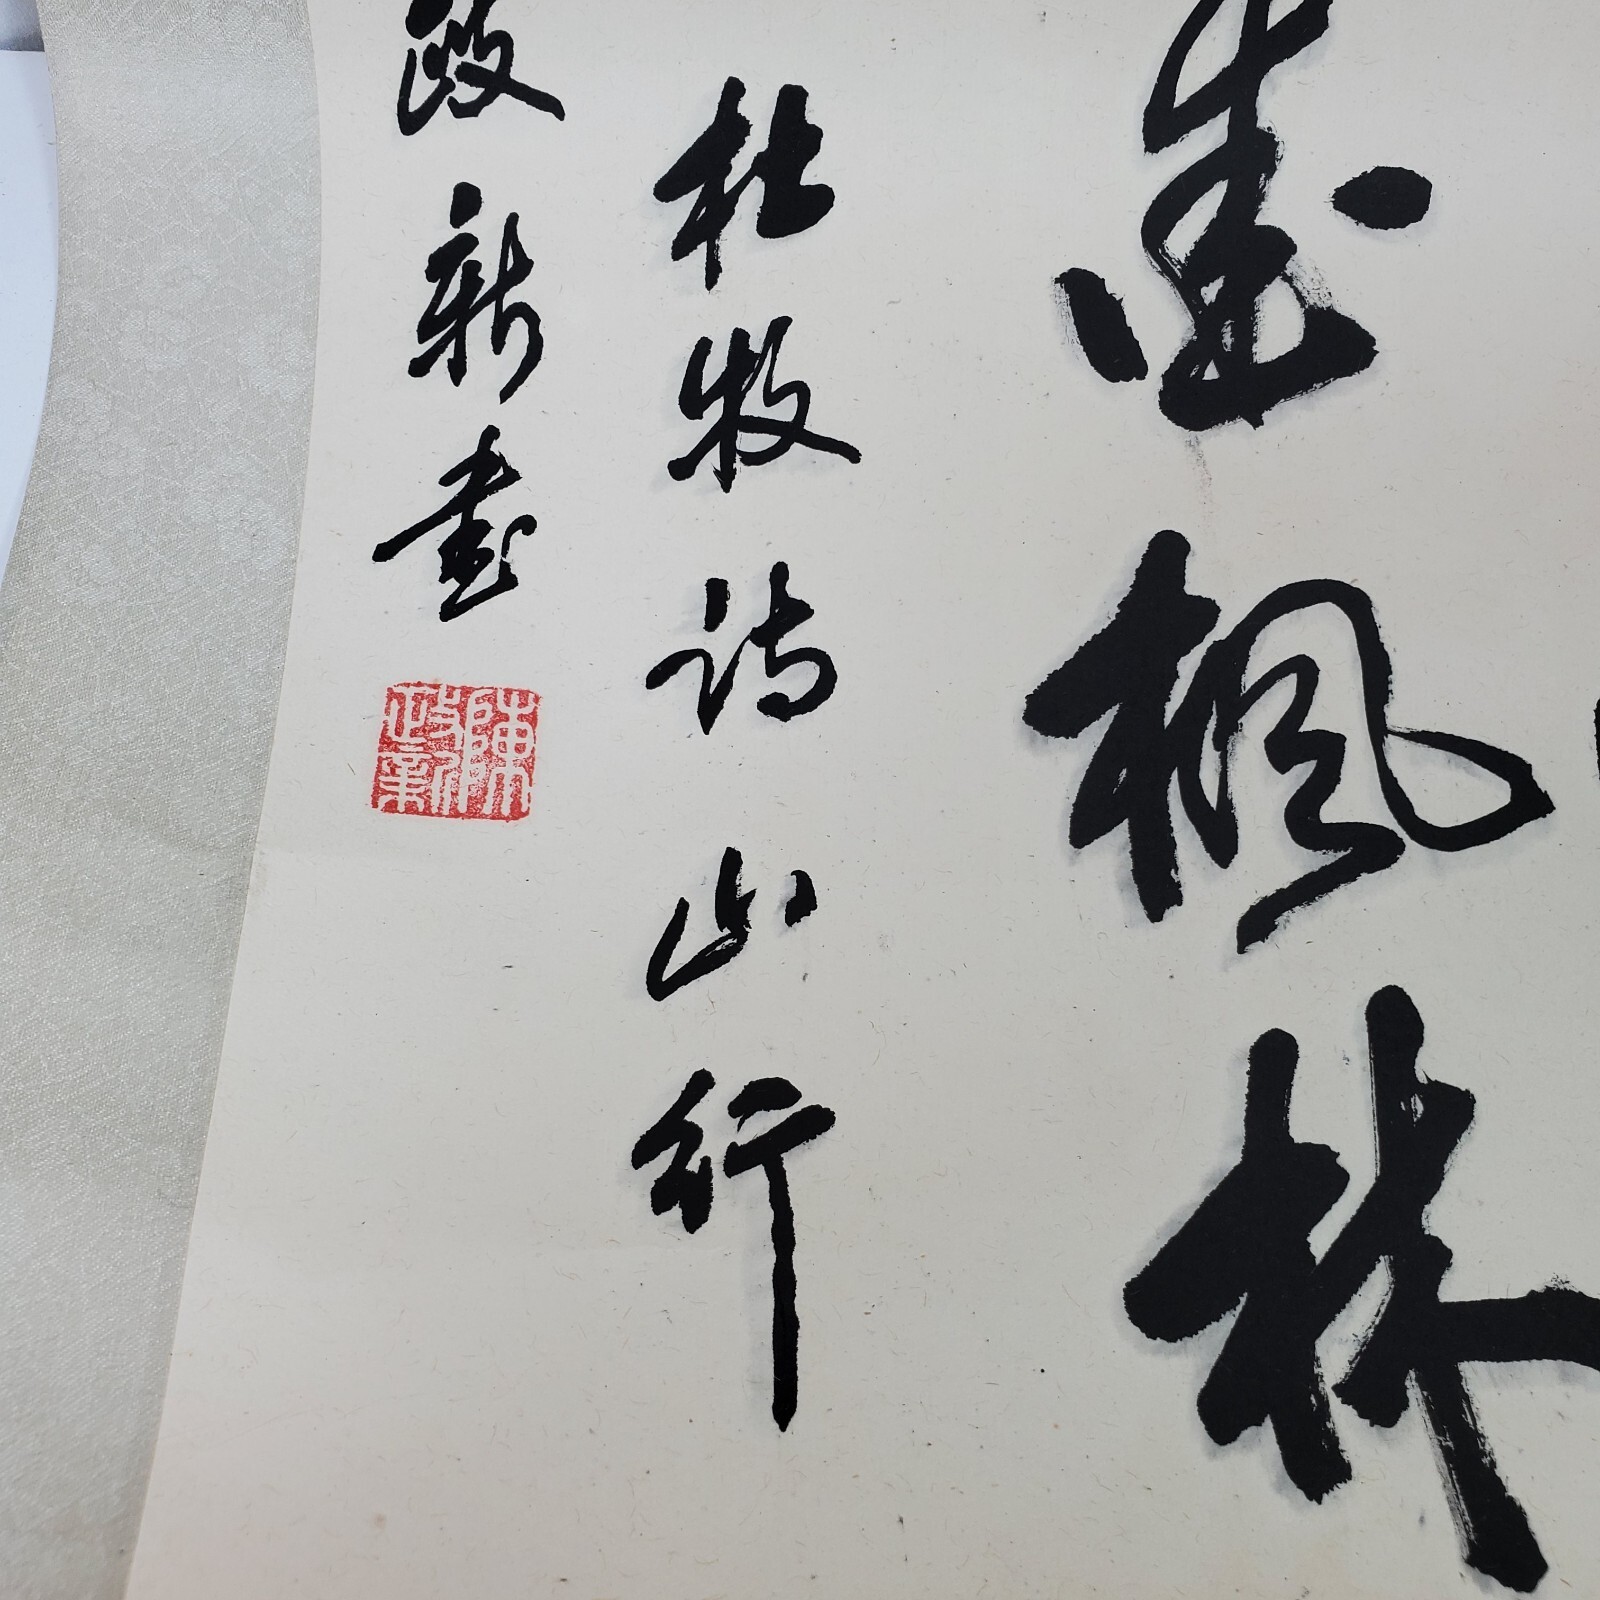 爱枫林
杜牧诗山行
政新书
陈政新印